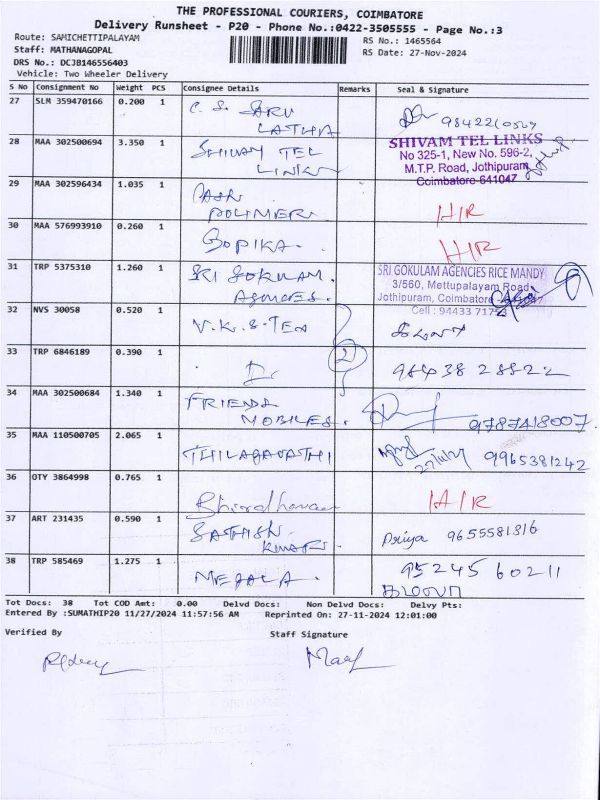 THE PROFESSIONAL COURIERS, COIMBATORE
Delivery Runsheet - P20 - Phone No.:0422-3505555 - Page No.:3
Route: SAMICHETTIPALAYAM
RS No.: 1465564
Staff: MATHANAGOPAL
RS Date: 27-Nov-2024
DRS No.: DCJB146556403
Vehicle: Two Wheeler Delivery
S No Consignment No Weight PCS Consignee Details Remarks Seal & Signature
27 SLM 359470166 0.200 1 C. S. SARU
LATHA
28 MAA 302500694 3.350 1 SHIVAM TEL
LINKS
SHIVAM TEL LINKS
No 325-1, New No. 596-2,
M.T.P. Road, Jothipuram,
Coimbatore-641047
29 MAA 302596434 1.035 1
POLIMER H/R
30 MAA 576993910 0.260 1 GOPIKA. H/R
31 TRP 5375310 1.260 1 SRI GOKULAM.
AGENCIES.
SRI GOKULAM AGENCIES RICE MANDY
3/560, Mettupalayam Road
Jothipuram, Coimbatore
Cell : 94433
32 NVS 30058 0.520 1 V.K.S. TEX
33 TRP 6846189 0.390 1 2
34 MAA 302500684 1.340 1 FRIENDS
MOBILES. 9787418007.
35 MAA 110500705 2.065 1 THILAGAVATHI 9965381242
36 OTY 3864998 0.765 1 H/R
37 ART 231435 0.590 1 SATHISH.
KUMAR. Priya 9655581816
38 TRP 585469 1.275 1 MEGALA. 95245 60211
Tot Docs: 38 Tot COD Amt: 0.00 Delvd Docs: Non Delvd Docs: Delvy Pts:
Entered By :SUMATHIP20 11/27/2024 11:57:56 AM Reprinted On: 27-11-2024 12:01:00
Verified By
Staff Signature